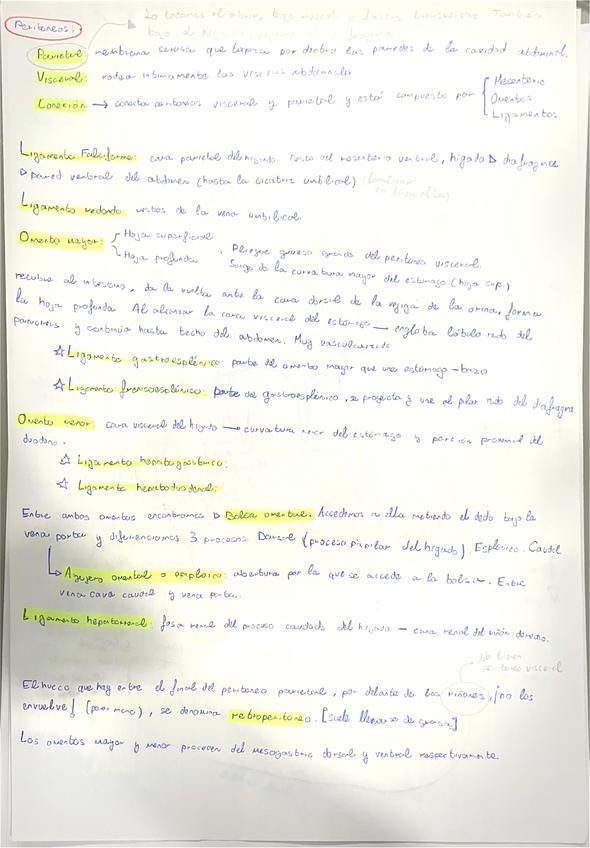 Peritoneos:
Lo tocamos al abrir, bajo También
bajo el
Parietal: membrana serosa que tapiza por dentro las paredes de la cavidad abdominal.
Visceral: rodea intimamente las visceras abdominales
Conexión → conecta peritoneos visceral y parietal y está compuesto por { Mesenterio
Omentos
Ligamentos.
Ligamento Falciforme: cara parietal del higado. Resto del mesenterio ventral, higado ▷ diafragma
▷ pared ventral del abdomen (hasta la cicatriz umbilical)
Ligamento redondo restos de la vena umbilical.
Omento mayor: Hoja superficial
Hoja profunda · Pliegue grueso grande del peritoneo visceral.
Surge de la curvatura mayor del estómago (hoja sup.)
recubre al intestino, da la vuelta ante la cara dorsal de la vejiga de la orina, forma
la hoja profunda. Al alcanzar la cara visceral del estómago — engloba lóbulo izdo del
pancreas y continúa hasta techo del abdomen. Muy vascularizado
☆ Ligamento gastroesplénico: parte del omento mayor que une estómago - bazo
☆ Ligamento frenicoesplénico: parte de gastroesplénico, se proyecta y une al pilar izdo del diafragma.
Omento menor: cara visceral del higado → curvatura menor del estómago y porción proximal del
duodeno.
☆ Ligamento hepatogástrico:
☆ Ligamento hepatoduodenal:
Entre ambos omentos encontramos ▷ Bolsa omental. Accedemos a ella metiendo el dedo bajo la
vena porta y diferenciamos 3 procesos. Dorsal (proceso papilar del higado). Esplénico. Caudal
↳ Agujero omental o epiploico: abertura por la que se accede a la bolsa. Entre
vena cava caudal y vena porta.
Ligamento hepatorrenal: fosa renal del proceso caudado del higado — cara renal del riñón derecho.
No tienen
peritoneo visceral
El hueco que hay entre el final del peritoneo parietal, por delante de los riñones, ¡no los
envuelve! (peritoneo), se denomina retroperitoneo. [suele llenarse de grasa]
Los omentos mayor y menor proceden del mesogastrio dorsal y ventral respectivamente.